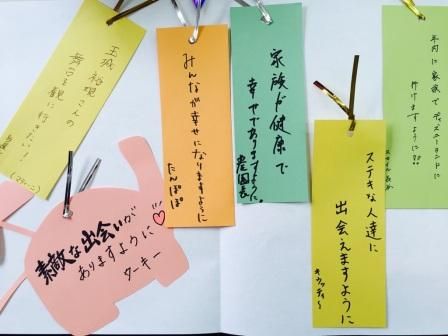 年内に家族でディズニーランドに
行けますように!!
ステキな人達に
出会えますように
家族が健康で
幸せでありますように
農園長
みんなが幸せになりますように
たんぽぽ
玉城 裕規さんの
舞台を観に行きたい!
素敵な出会いが
ありますように♡
ターキー